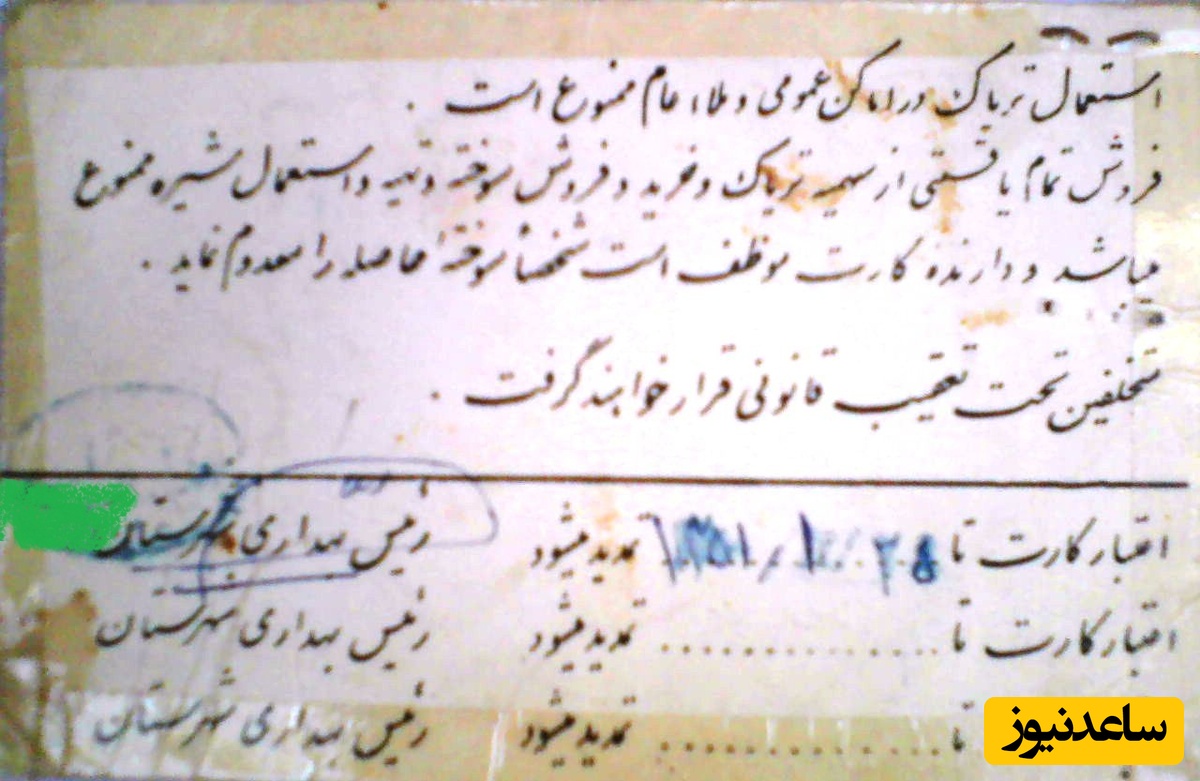 استعمال تریاک در اماکن عمومی و ملاء عام ممنوع است .
فروش تمام یا قسمتی از سهمیه تریاک و خرید و فروش سوخته و تهیه و استعمال شیره ممنوع
میباشد و دارنده کارت موظف است شخصاً سوخته حاصله را معدوم نماید .
متخلفین تحت تعقیب قانونی قرار خواهند گرفت .
اعتبار کارت تا تمدید میشود رئیس بهداری شهرستان
اعتبار کارت تا .............. تمدید میشود رئیس بهداری شهرستان
تا .............. تمدید میشود رئیس بهداری شهرستان
ساعدنیوز